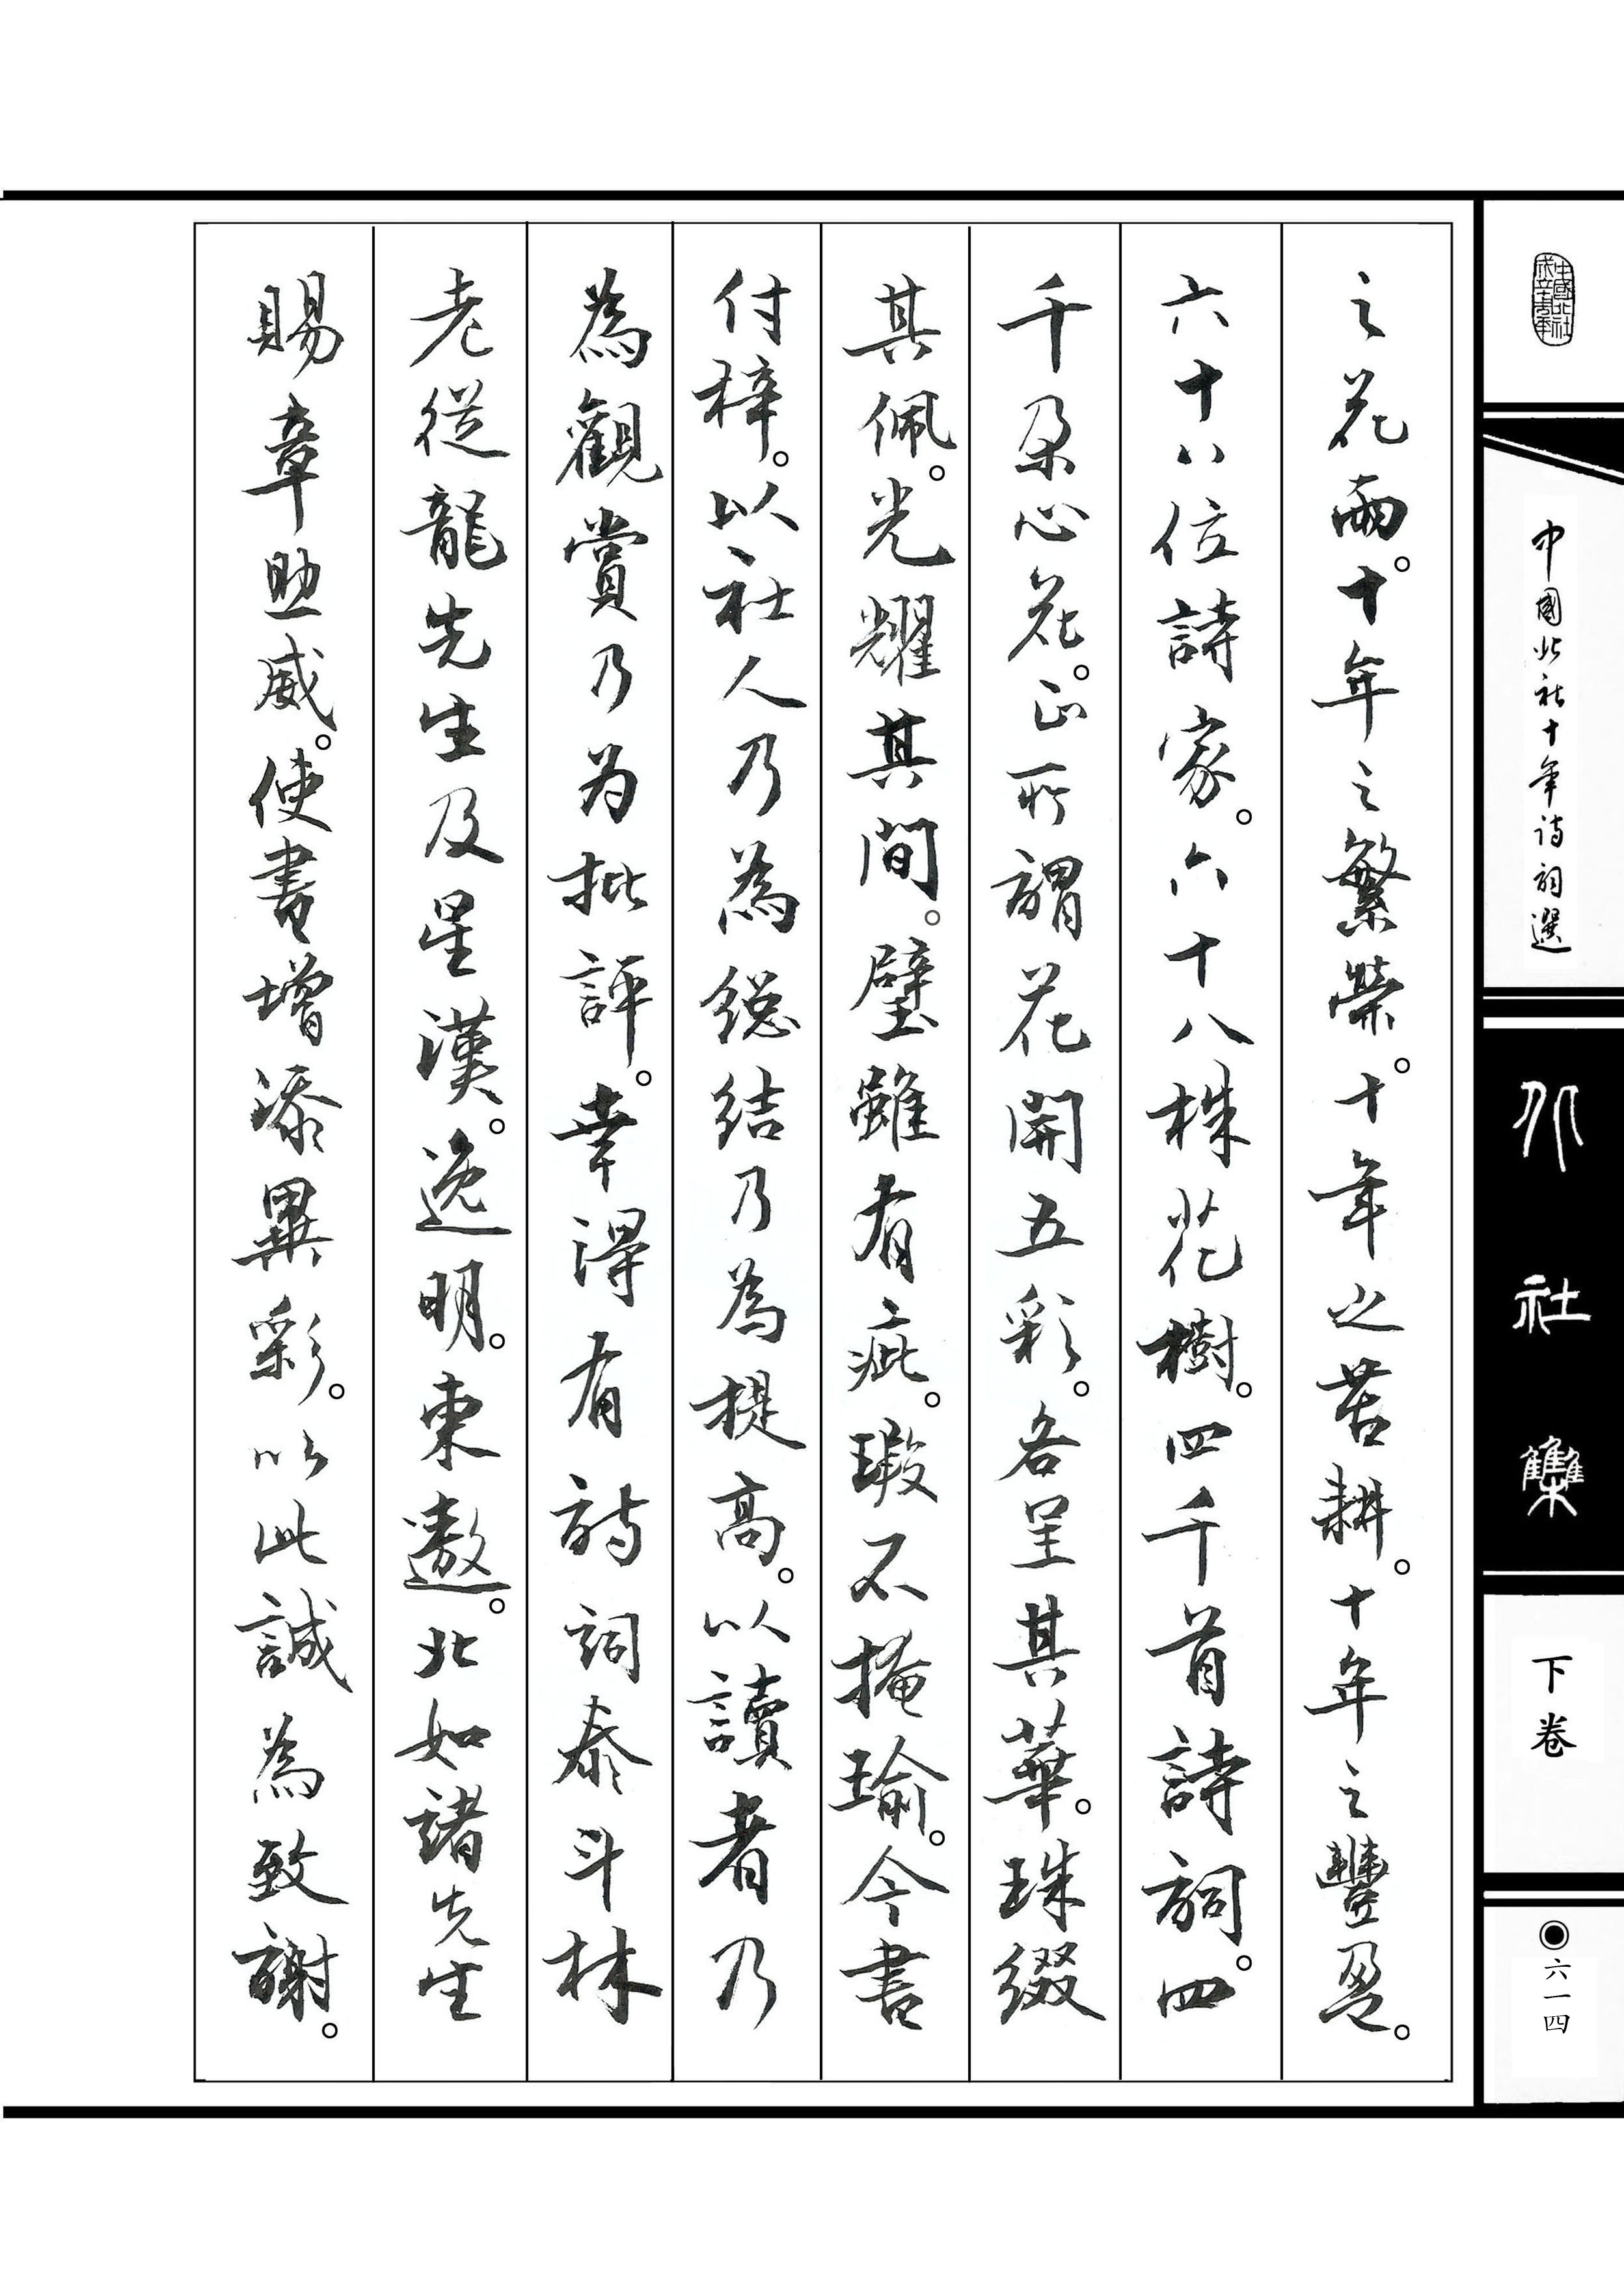 之花雨。十年之繁榮。十年之苦耕。十年之豐盈。
六十八位詩家。六十八株花樹。四千首詩詞。四
千朵心花。正所謂花開五彩。各呈其華。珠綴
其佩。光耀其間。璧雖有疵。瑕不掩瑜。今書
付梓。以社人乃為總結乃為提高。以讀者乃
為觀賞乃为批評。幸得有詩詞泰斗林
老從龍先生及星漢。逸明。東遨。北如諸先生
賜章助威。使書增添異彩。以此誠為致謝。
中國北社十年诗詞選
北社集
下卷
六一四